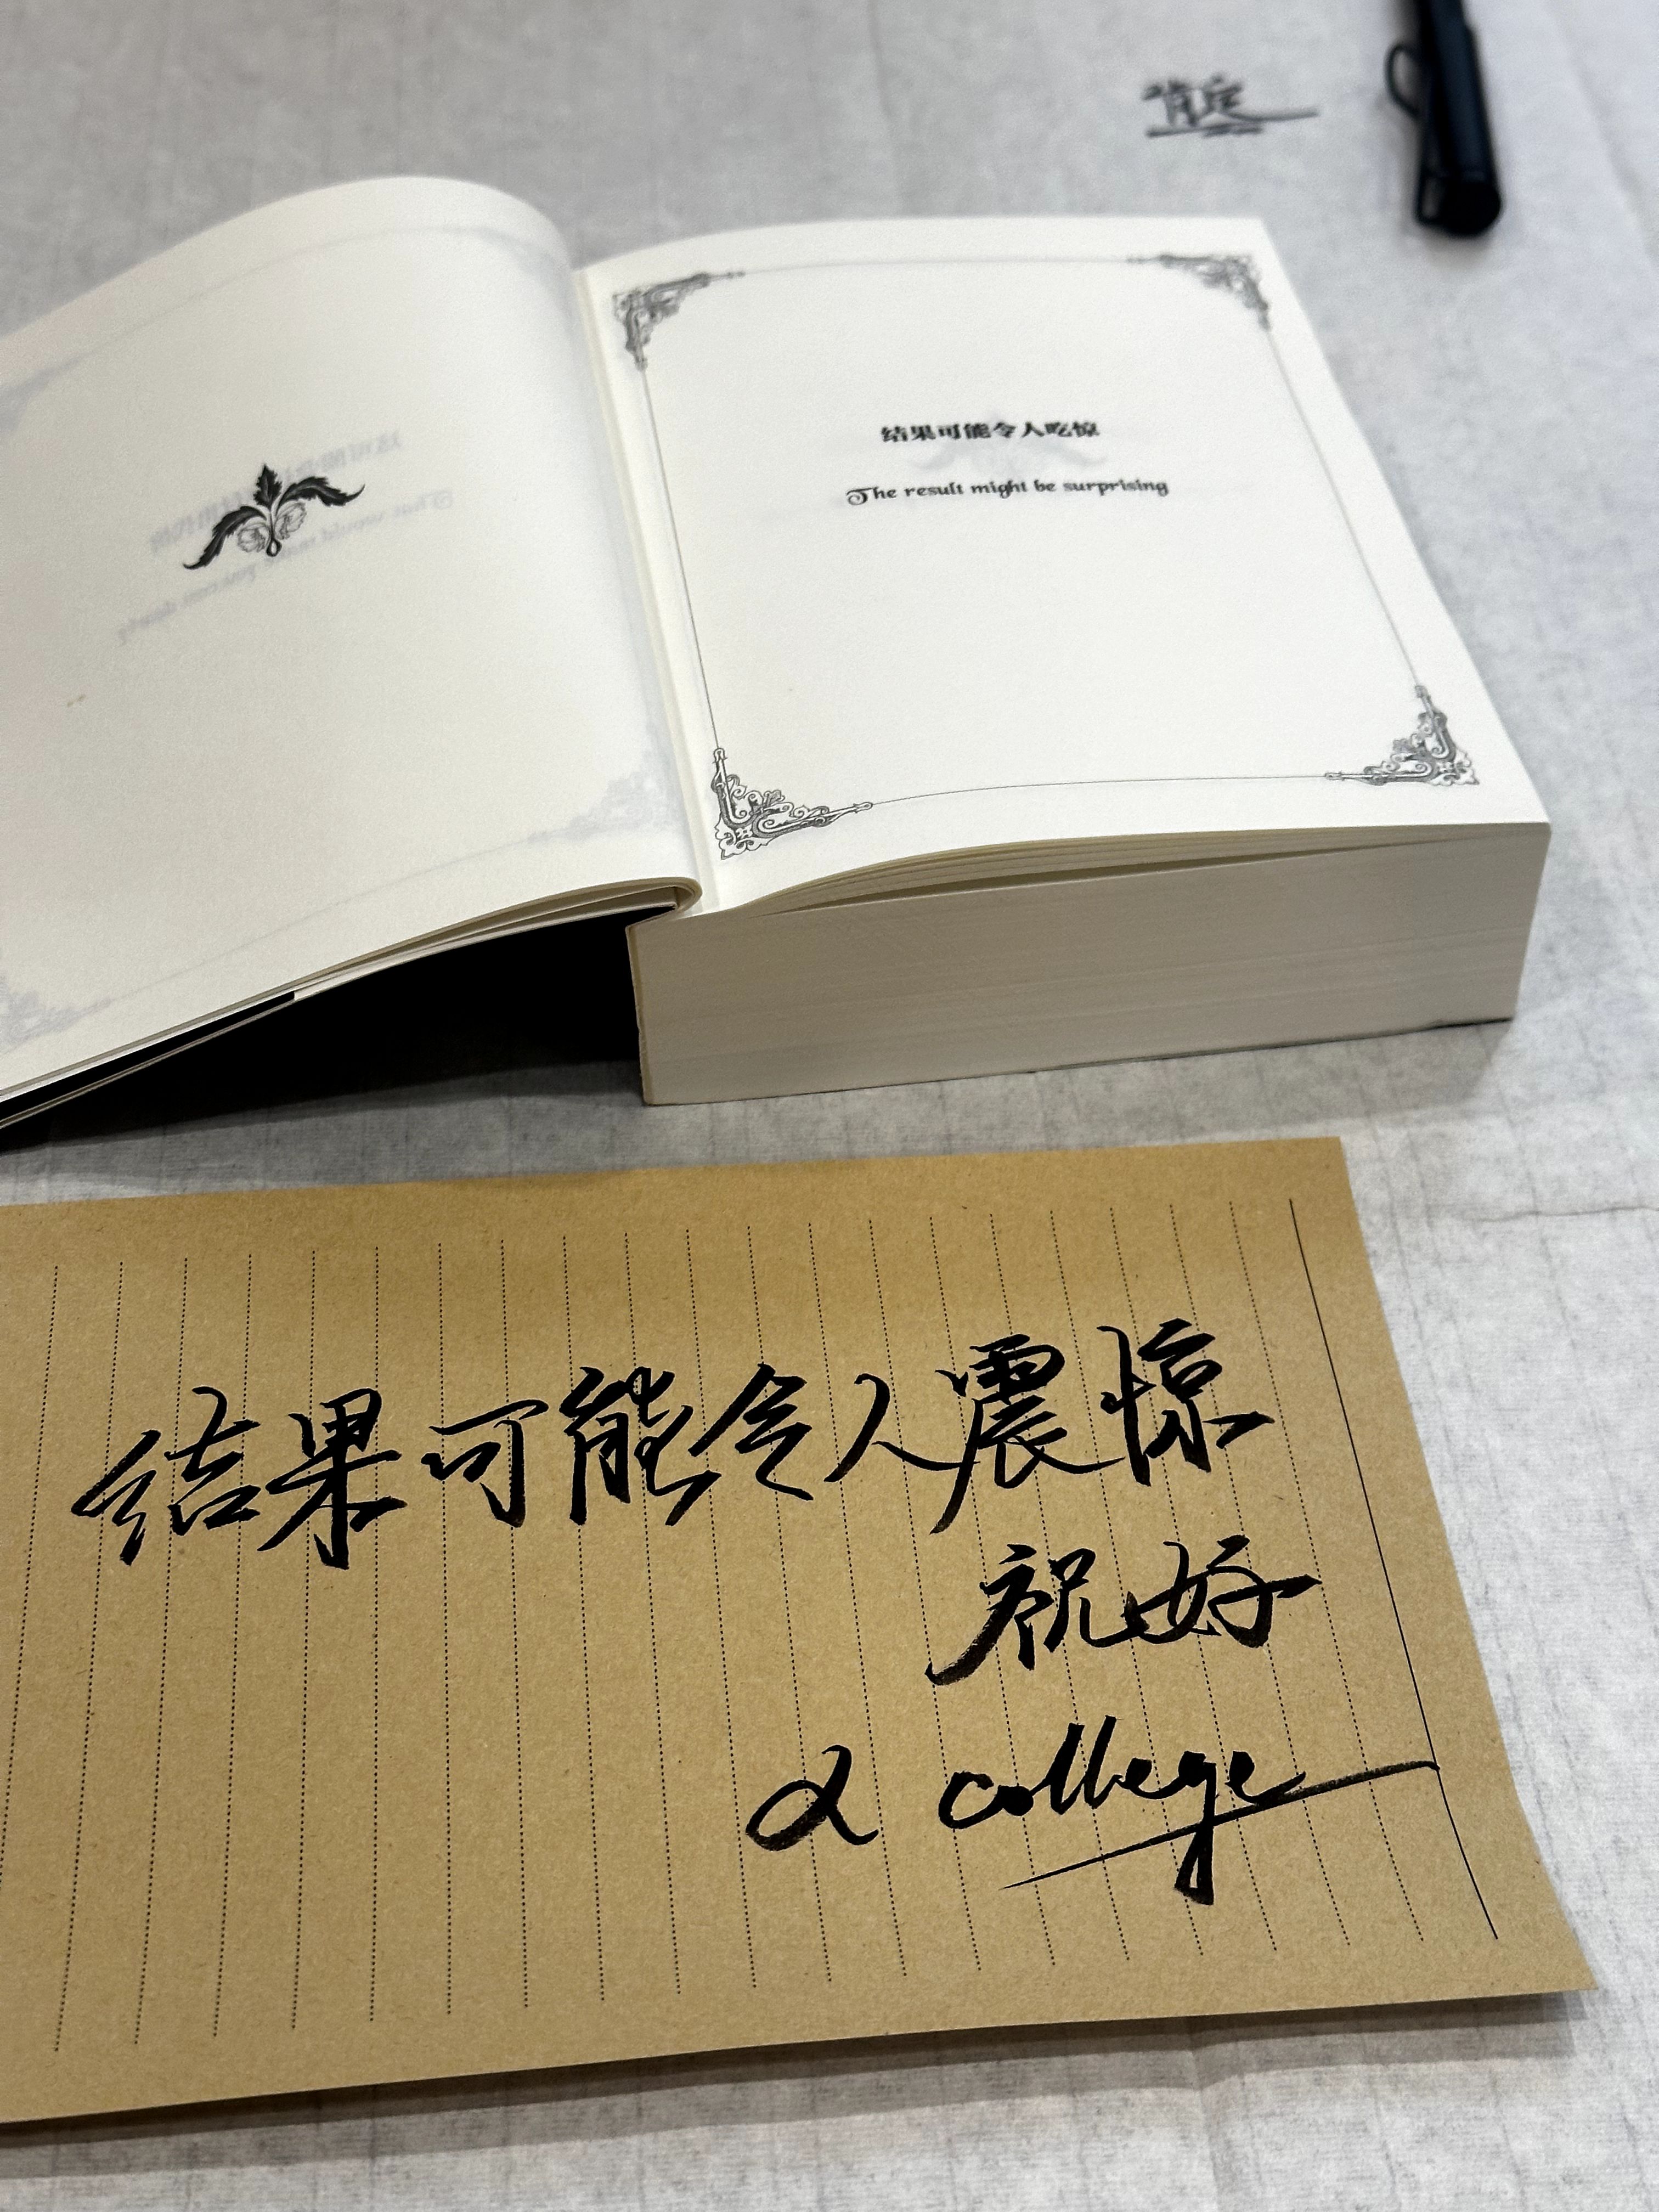 肯定
结果可能令人吃惊
The result might be surprising
结果可能令人震惊
祝好
α college